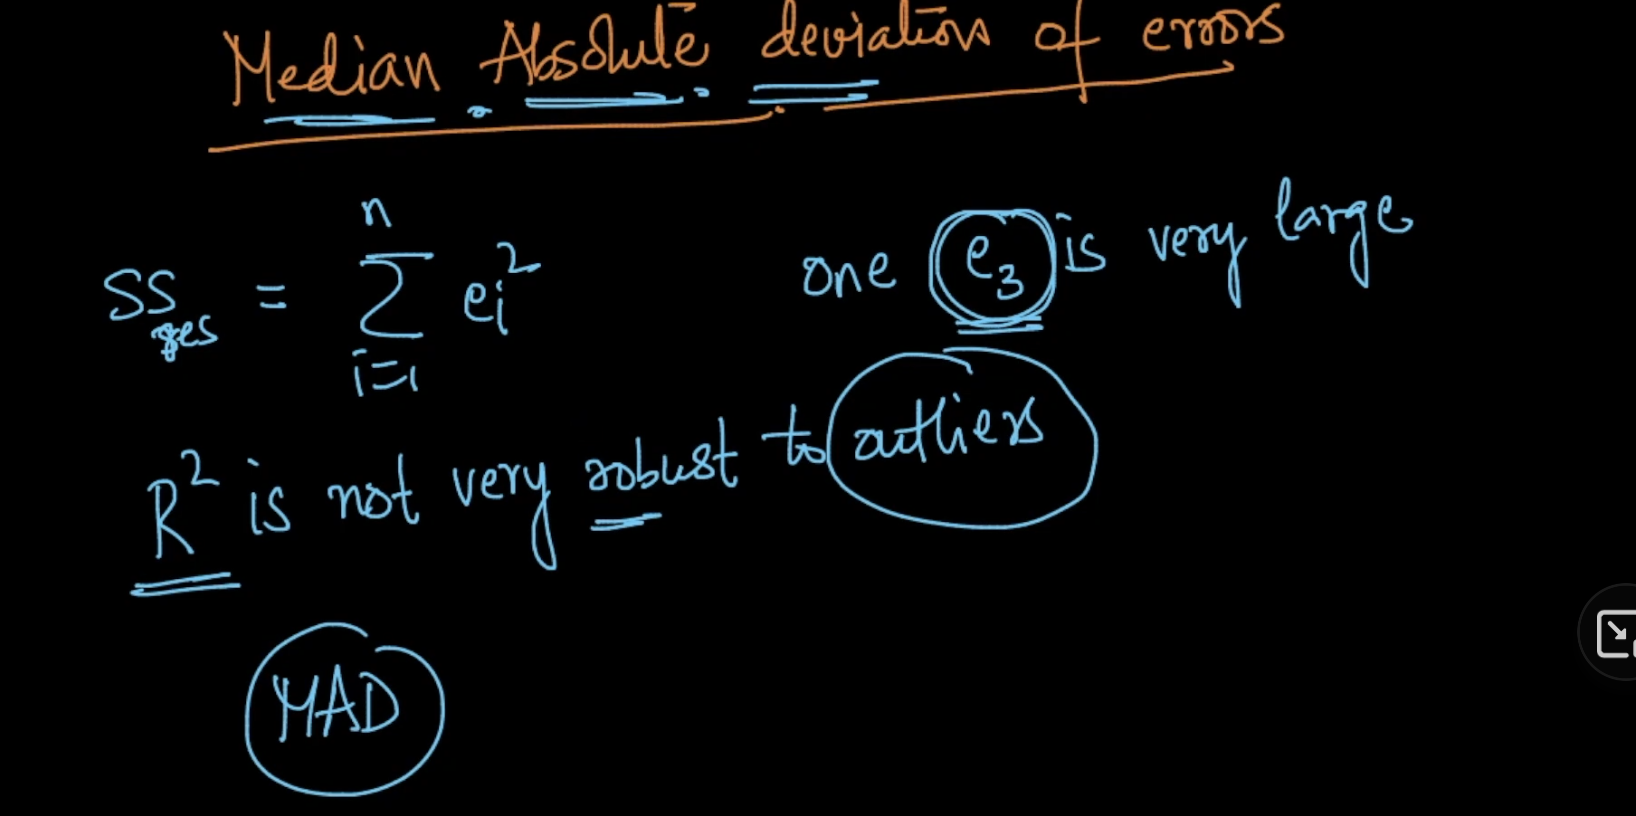 Median Absolute deviation of errors
SS res = n Σ i=1 ei²
one e₃ is very large
R² is not very robust to outliers
MAD